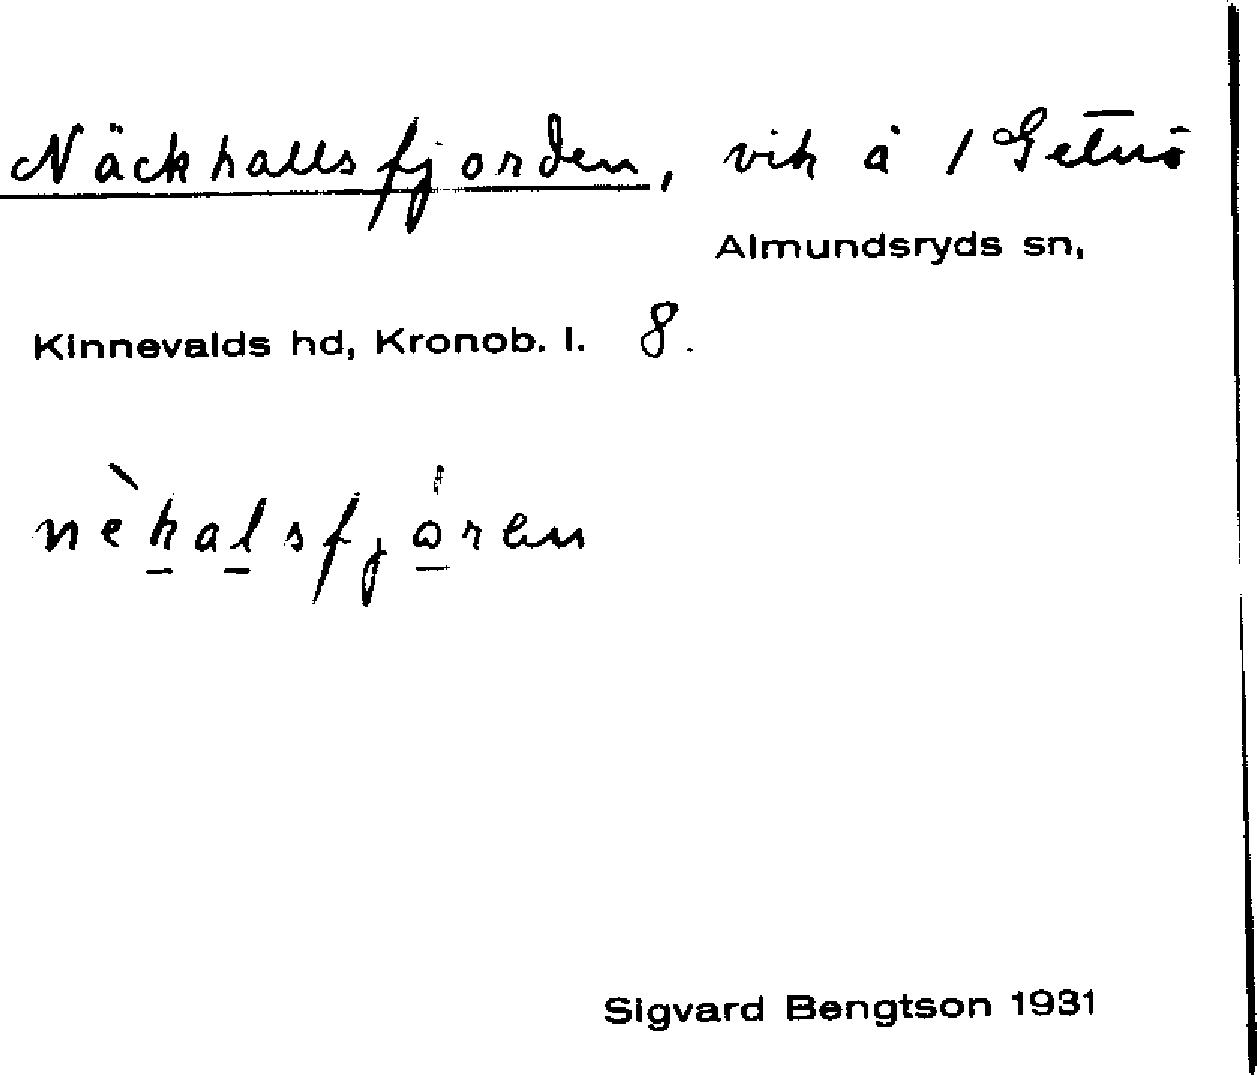 Näckhallsfjorden, vik å /Getnö
Almundsryds sn,
Kinnevalds hd, Kronob. l. 8.
nèkalsfjåren
Sigvard Bengtson 1931